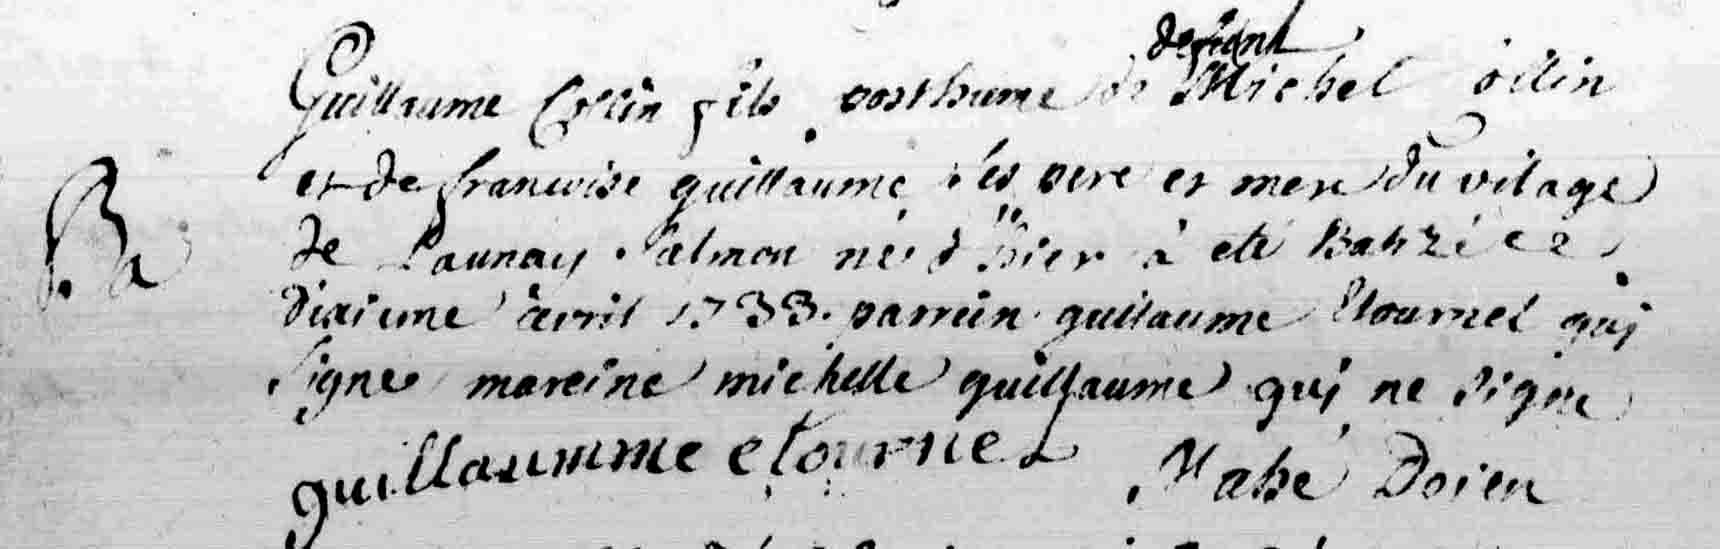 defunt
Guillaume Collin fils posthume de Michel Collin
et de francoise guillaume ses pere et mere du vilage
Ba
de Launay Salmon né d'hier à eté Batizé ce
dixieme avril 1733. parrein guillaume Etournel qui
signe mareine michelle guillaume qui ne signe
guillaumme etournel Mahé Doien